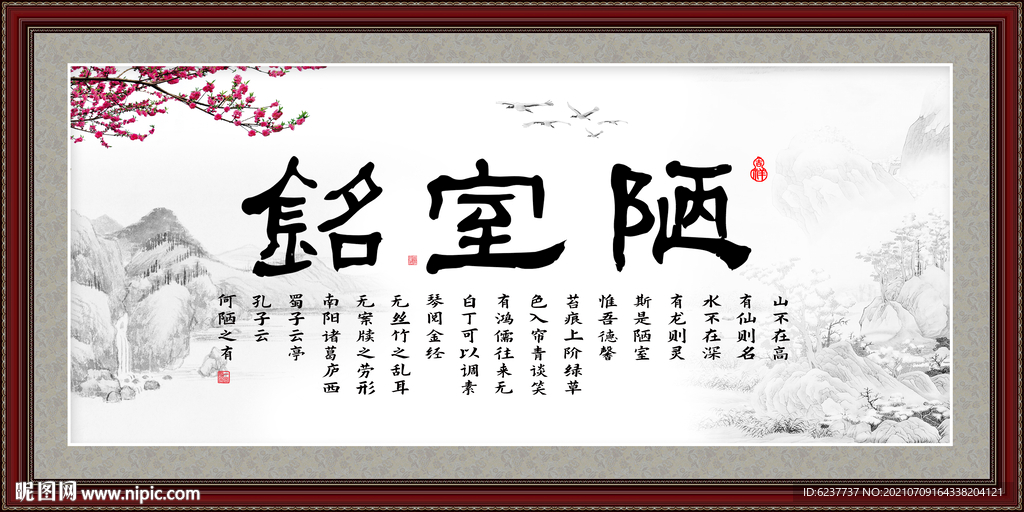 陋室銘
山不在高
有仙则名
水不在深
有龙则灵
斯是陋室
惟吾德馨
苔痕上阶绿草
色入帘青谈笑
有鸿儒往来无
白丁可以调素
琴阅金经
无丝竹之乱耳
无案牍之劳形
南阳诸葛庐西
蜀子云亭
孔子云
何陋之有
昵图网 www.nipic.com
ID:6237737 NO:20210709164338204121